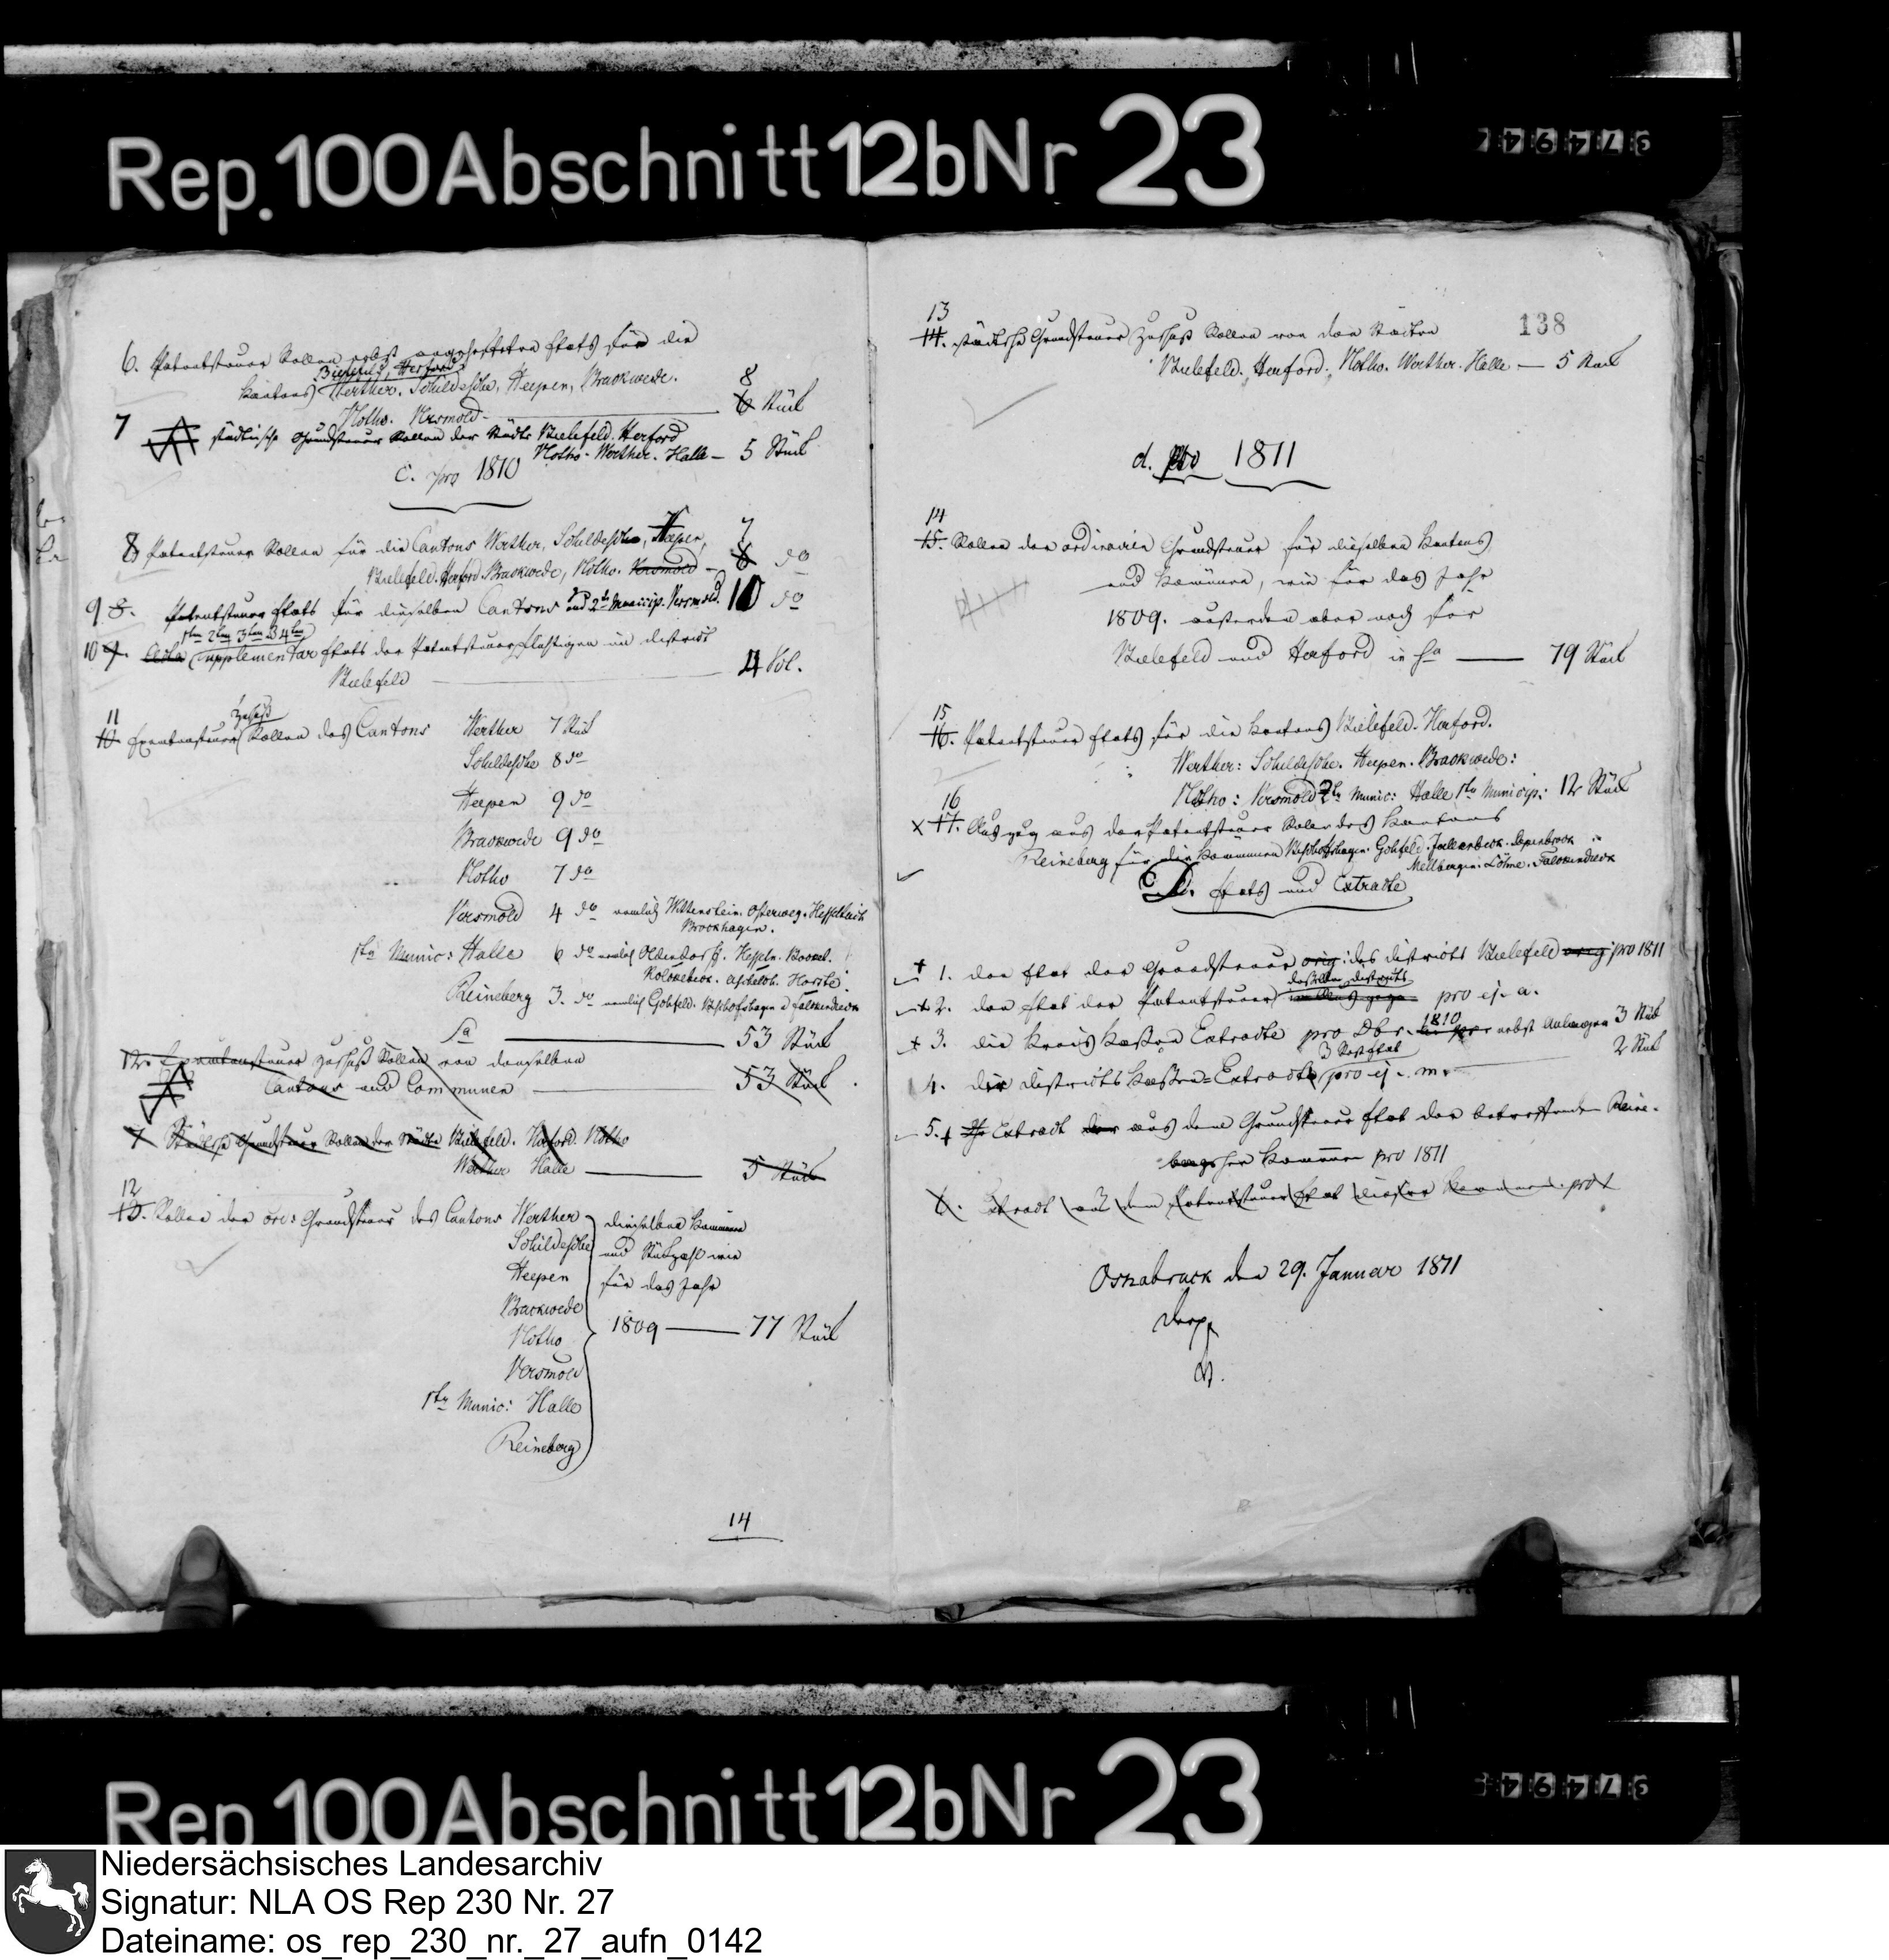 Rep. 100 Abschnitt 12b Nr 23
6. Patentsteuer Rollen nebst angehefteten Etats für die
Bielefeld, Herford
Kantons Werther. Schildesche, Heepen, Brackwede.
Vlotho. Versmold
8
6 Stück
7
städtische Grundsteuer Rollen der Städte Bielefeld. Herford
Vlotho. Werther. Halle — 5 Stück
c. pro 1810
8 Patentsteuer Rollen für die Cantons Werther, Schildesche, Heepen,
7
Bielefeld. Herford. Brackwede, Vlotho. Versmold — 8 do
9 8. Patentsteuer Etats für dieselben Cantons und 2te Municip. Versmold. 10 do
1ten 2ten 3ten & 4ten
10 9. Acta Supplementar Etats der Patentsteuerpflichtigen im District
Bielefeld 4 Vol.
11
Zuschuß
10. Exemtensteuer Rollen des Cantons Werther 7 Stück
Schildesche 8 do
Heepen 9 do
Brackwede 9 do
Vlotho 7 do
Versmold 4 do nemlich Osterweg. Hesselteich
Brockhagen.
1te Munic: Halle 6 do nemlich Oldendorf. Hesseln. Bockel.
Kölkebeck. Ascheloh. Hörste.
Reineberg 3. do nemlich Gohfeld. Bischofshagen & Falkendieck
Sa 53 Stück
12. Exemtensteuer Zuschuß Rollen von denselben
Cantons und Communen 53 Stück
Städtische Grundsteuer Rollen der Städte Bielefeld. Herford. Vlotho
Werther Halle 5 Stück
12
13. Rollen der ord: Grundsteuer des Cantons Werther dieselben Kommunen
Schildesche und Stückzahl wie
Heepen für das Jahr
Brackwede
Vlotho 1809 — 77 Stück
Versmold
1te Munic: Halle
Reineberg
14
138
13
14. städtische Grundsteuer Zuschuß Rollen von den Städten
Bielefeld. Herford. Vlotho. Werther. Halle — 5 Stück
d. pro 1811
14
15. Rollen der ordinairen Grundsteuer für dieselben Kantons
und Kommunen, wie für das Jahr
1809. außerdem aber noch für
Bielefeld und Herford in Sa — 79 Stück
15
16. Patentsteuer Etats für die Kantons Bielefeld. Herford.
Werther: Schildesche. Heepen. Brackwede:
Vlotho: Versmold 2te Munic: Halle 1te Municip: 12 Stück
16
x 17. Auszug aus der Patentsteuer Rolle des Kantons
Reineberg für die Kommunen Bischofshagen. Gohfeld.
Mellbergen. Löhne. Falkendieck
D. Etats und Extracte
+ 1. der Etat der Grundsteuer orig: des Districts Bielefeld orig pro 1811
desselben Districts
+ 2. der Etat der Patentsteuer pro ej. a.
+ 3. die Kreis Kassen Extracte pro Dbr. 1810 nebst Anlagen 3 Stück
4. die Districts Kassen-Extracte pro ej. m. 2 Stück
5. + Extract aus dem Grundsteuer Etat der betreffenden Reine-
berger Kommunen pro 1811
6. Extract aus dem Patentsteuer Etat dieser Kommunen. pro
Osnabrück den 29. Januar 1811
Niedersächsisches Landesarchiv
Signatur: NLA OS Rep 230 Nr. 27
Dateiname: os_rep_230_nr._27_aufn_0142